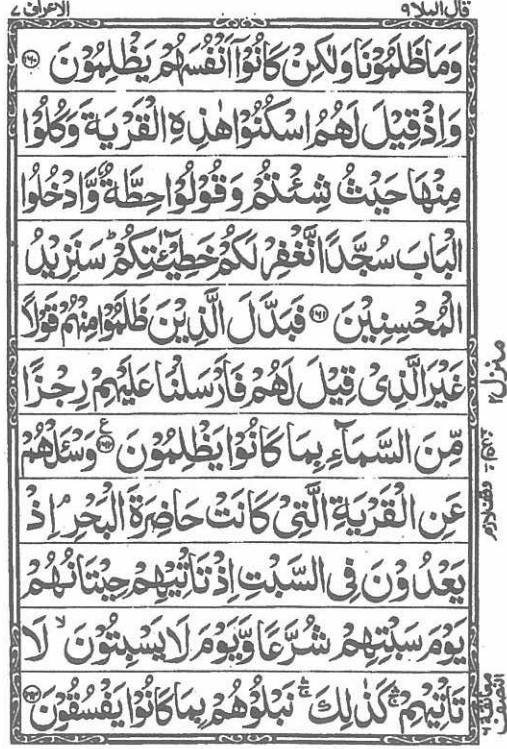 قال الملا ٩
الاعراف ٧
وَمَا ظَلَمُوْنَا وَلٰكِنْ كَانُوْۤا اَنْفُسَهُمْ يَظْلِمُوْنَ ۝۱۶۰
وَاِذْ قِيْلَ لَهُمُ اسْكُنُوْا هٰذِهِ الْقَرْيَةَ وَكُلُوْا
مِنْهَا حَيْثُ شِئْتُمْ وَقُوْلُوْا حِطَّةٌ وَّادْخُلُوا
الْبَابَ سُجَّدًا نَّغْفِرْ لَكُمْ خَطِيْٓـٰٔتِكُمْ ؕ سَنَزِيْدُ
الْمُحْسِنِيْنَ ۝۱۶۱ فَبَدَّلَ الَّذِيْنَ ظَلَمُوْا مِنْهُمْ قَوْلًا
غَيْرَ الَّذِىْ قِيْلَ لَهُمْ فَاَرْسَلْنَا عَلَيْهِمْ رِجْزًا
مِّنَ السَّمَآءِ بِمَا كَانُوْا يَظْلِمُوْنَ ۝۱۶۲ ع وَسْـَٔلْهُمْ
عَنِ الْقَرْيَةِ الَّتِىْ كَانَتْ حَاضِرَةَ الْبَحْرِ ۘ اِذْ
يَعْدُوْنَ فِى السَّبْتِ اِذْ تَاْتِيْهِمْ حِيْتَانُهُمْ
يَوْمَ سَبْتِهِمْ شُرَّعًا وَّيَوْمَ لَا يَسْبِتُوْنَ ۙ لَا
تَاْتِيْهِمْ ۛۚ كَذٰلِكَ ۛۚ نَبْلُوْهُمْ بِمَا كَانُوْا يَفْسُقُوْنَ ۝۱۶۳
منزل ٢
وقف لازم
معانقة ٦
النصف